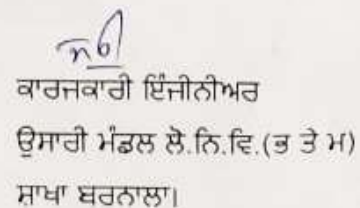 ਕਾਰਜਕਾਰੀ ਇੰਜੀਨੀਅਰ
ਉਸਾਰੀ ਮੰਡਲ ਲੋ.ਨਿ.ਵਿ.(ਭ ਤੇ ਮ)
ਸ਼ਾਖਾ ਬਰਨਾਲਾ।